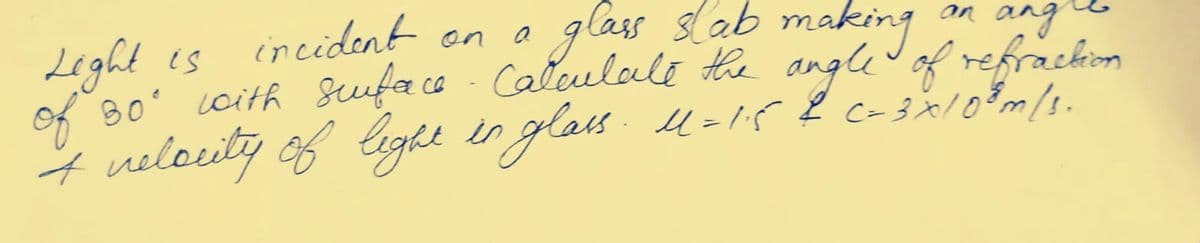 Light is incident on a glass slab making an angle
of 30° with surface. Calculate the angle of refraction
& velocity of light in glass. μ=1.5 & c=3×10⁸m/s.